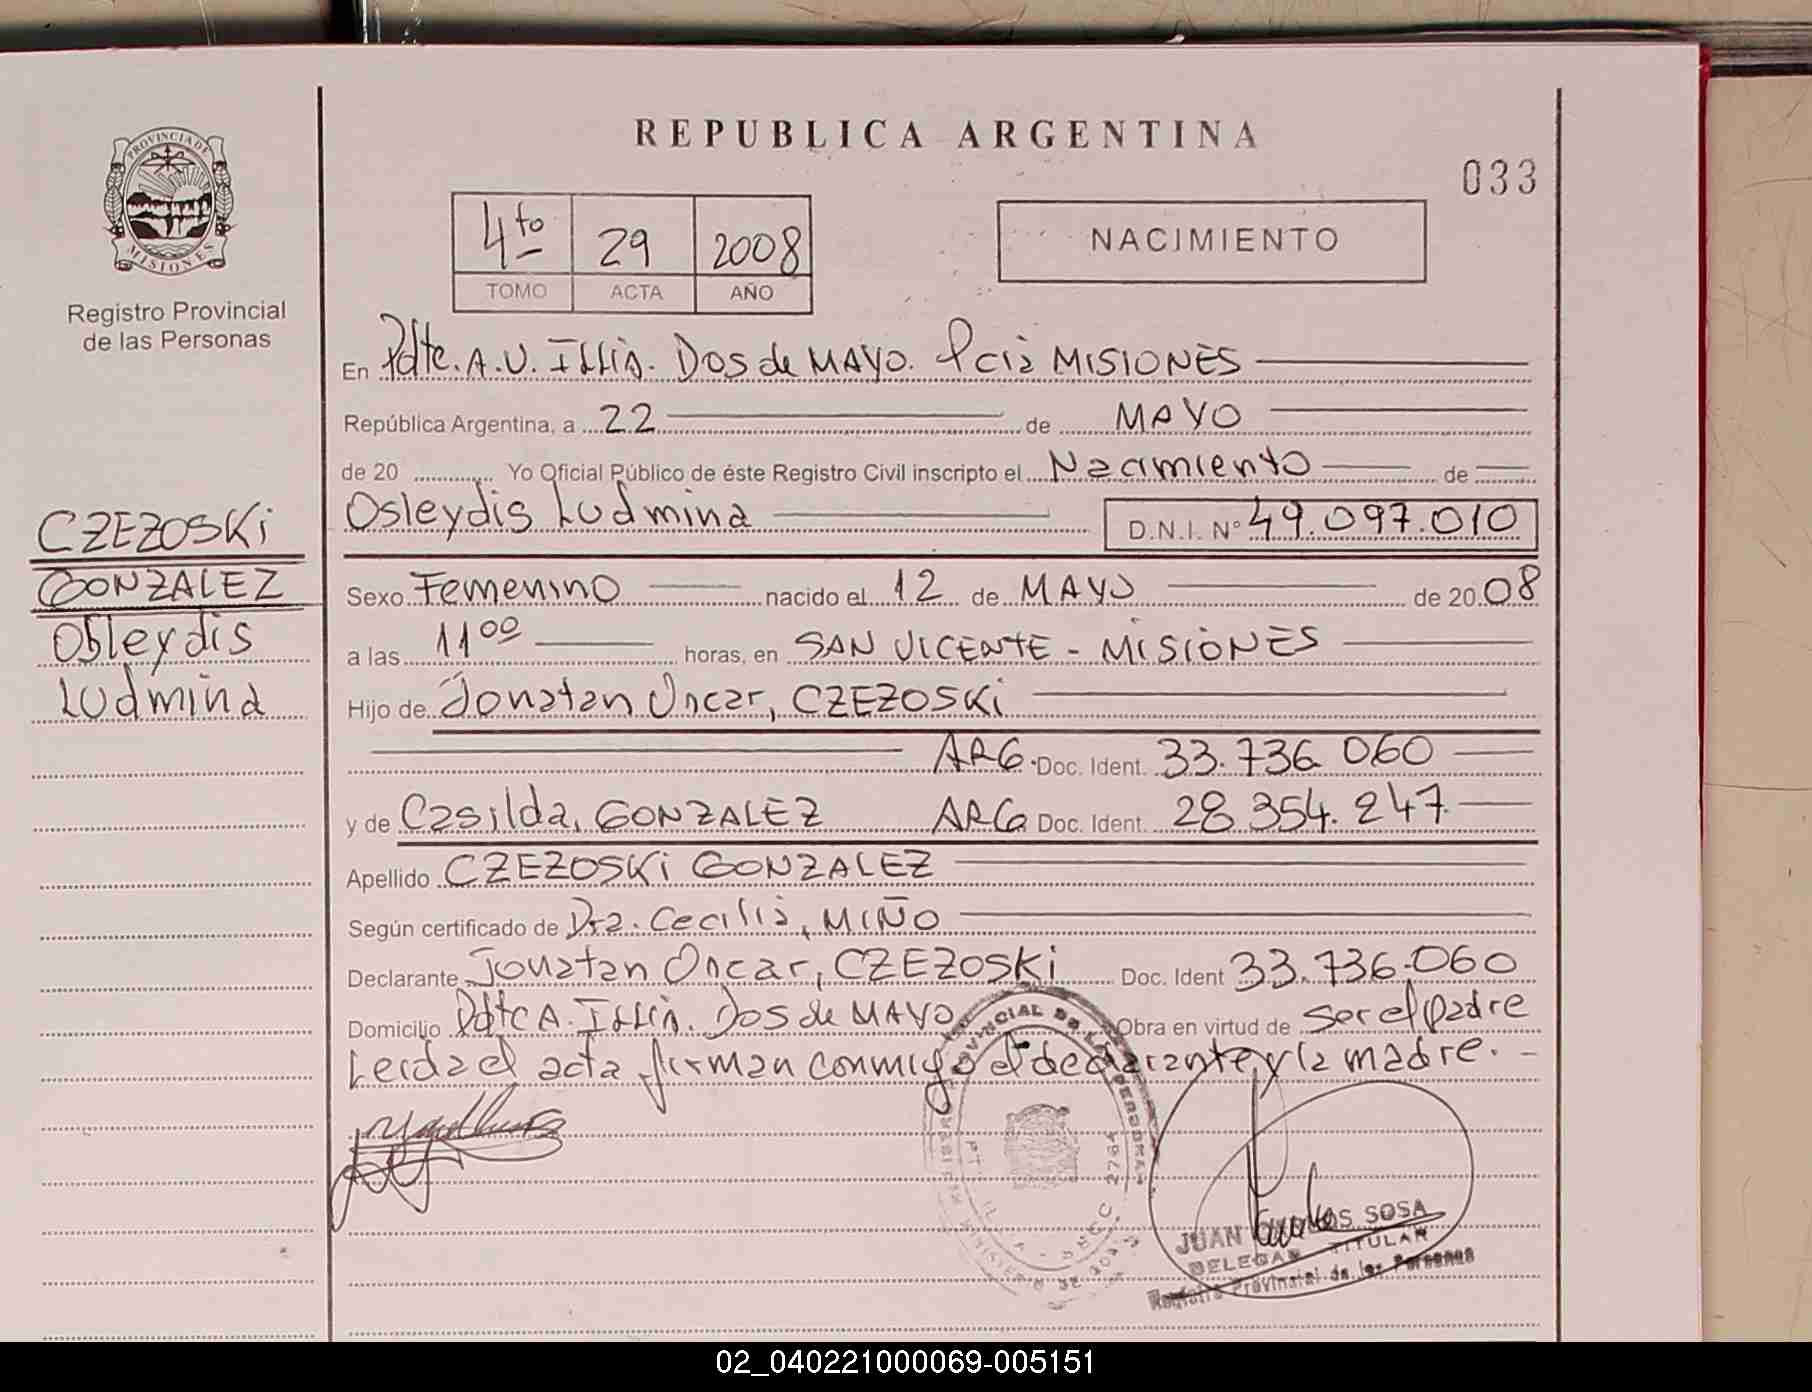 REPUBLICA ARGENTINA
033
PROVINCIA DE
MISIONES
Registro Provincial
de las Personas
4to 29 2008
TOMO ACTA AÑO
NACIMIENTO
En Pdte. A. U. Illia. Dos de MAYO. Pcia MISIONES
República Argentina, a 22 de MAYO
de 20 Yo Oficial Público de éste Registro Civil inscripto el Nacimiento de
Osleydis Ludmina D.N.I. Nº 49.097.010
CZEZOSKi
GONZALEZ
Osleydis
Ludmina
Sexo Femenino nacido el 12 de MAYO de 20 08
a las 11 00 horas, en SAN VICENTE - MISIONES
Hijo de Jonatan Oscar, CZEZOSKi
ARG. Doc. Ident. 33.736.060
y de Casilda, GONZALEZ ARG Doc. Ident. 28.354.247
Apellido CZEZOSKi GONZALEZ
Según certificado de Dra. Cecilia, MIÑO
Declarante Jonatan Oscar, CZEZOSKi Doc. Ident 33.736.060
Domicilio Pdte A. Illia. Dos de MAYO Obra en virtud de ser el padre
Leida el acta firman conmigo el declarante y la madre. -
JUAN SOSA
TITULAR
Registro Provincial de las Personas
02_040221000069-005151